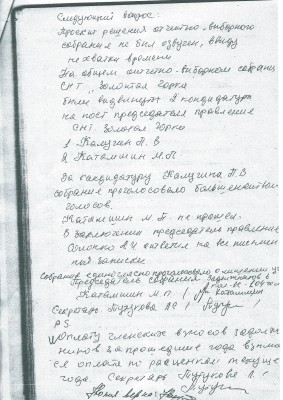 Следующий вопрос:
Проект решения отчетно-выборного
собрания не был озвучен, ввиду
нехватки времени
На общем отчетно-выборном собрании
СНТ „Золотая Горка
были выдвинуты 2 кандидатуры
на пост председателя правления
СНТ. Золотая Горка
1. Калугин П. В
2 Каташин М. П
За кандидатуру Калугина П. В
собрание проголосовало большинством
голосов.
Каташин М. П - не прошел.
В заключении председатель правления
ответил на все письмен
ные записки
Собрание единогласно проголосовало
Председатель собрания
Каташин М. П
Секретарь Тутукова Л С
P S.
Оплату членских взносов задолж
ников за прошедшие года взима
ся оплата по расценкам текуще
года. Секретарь Тутукова Л. С